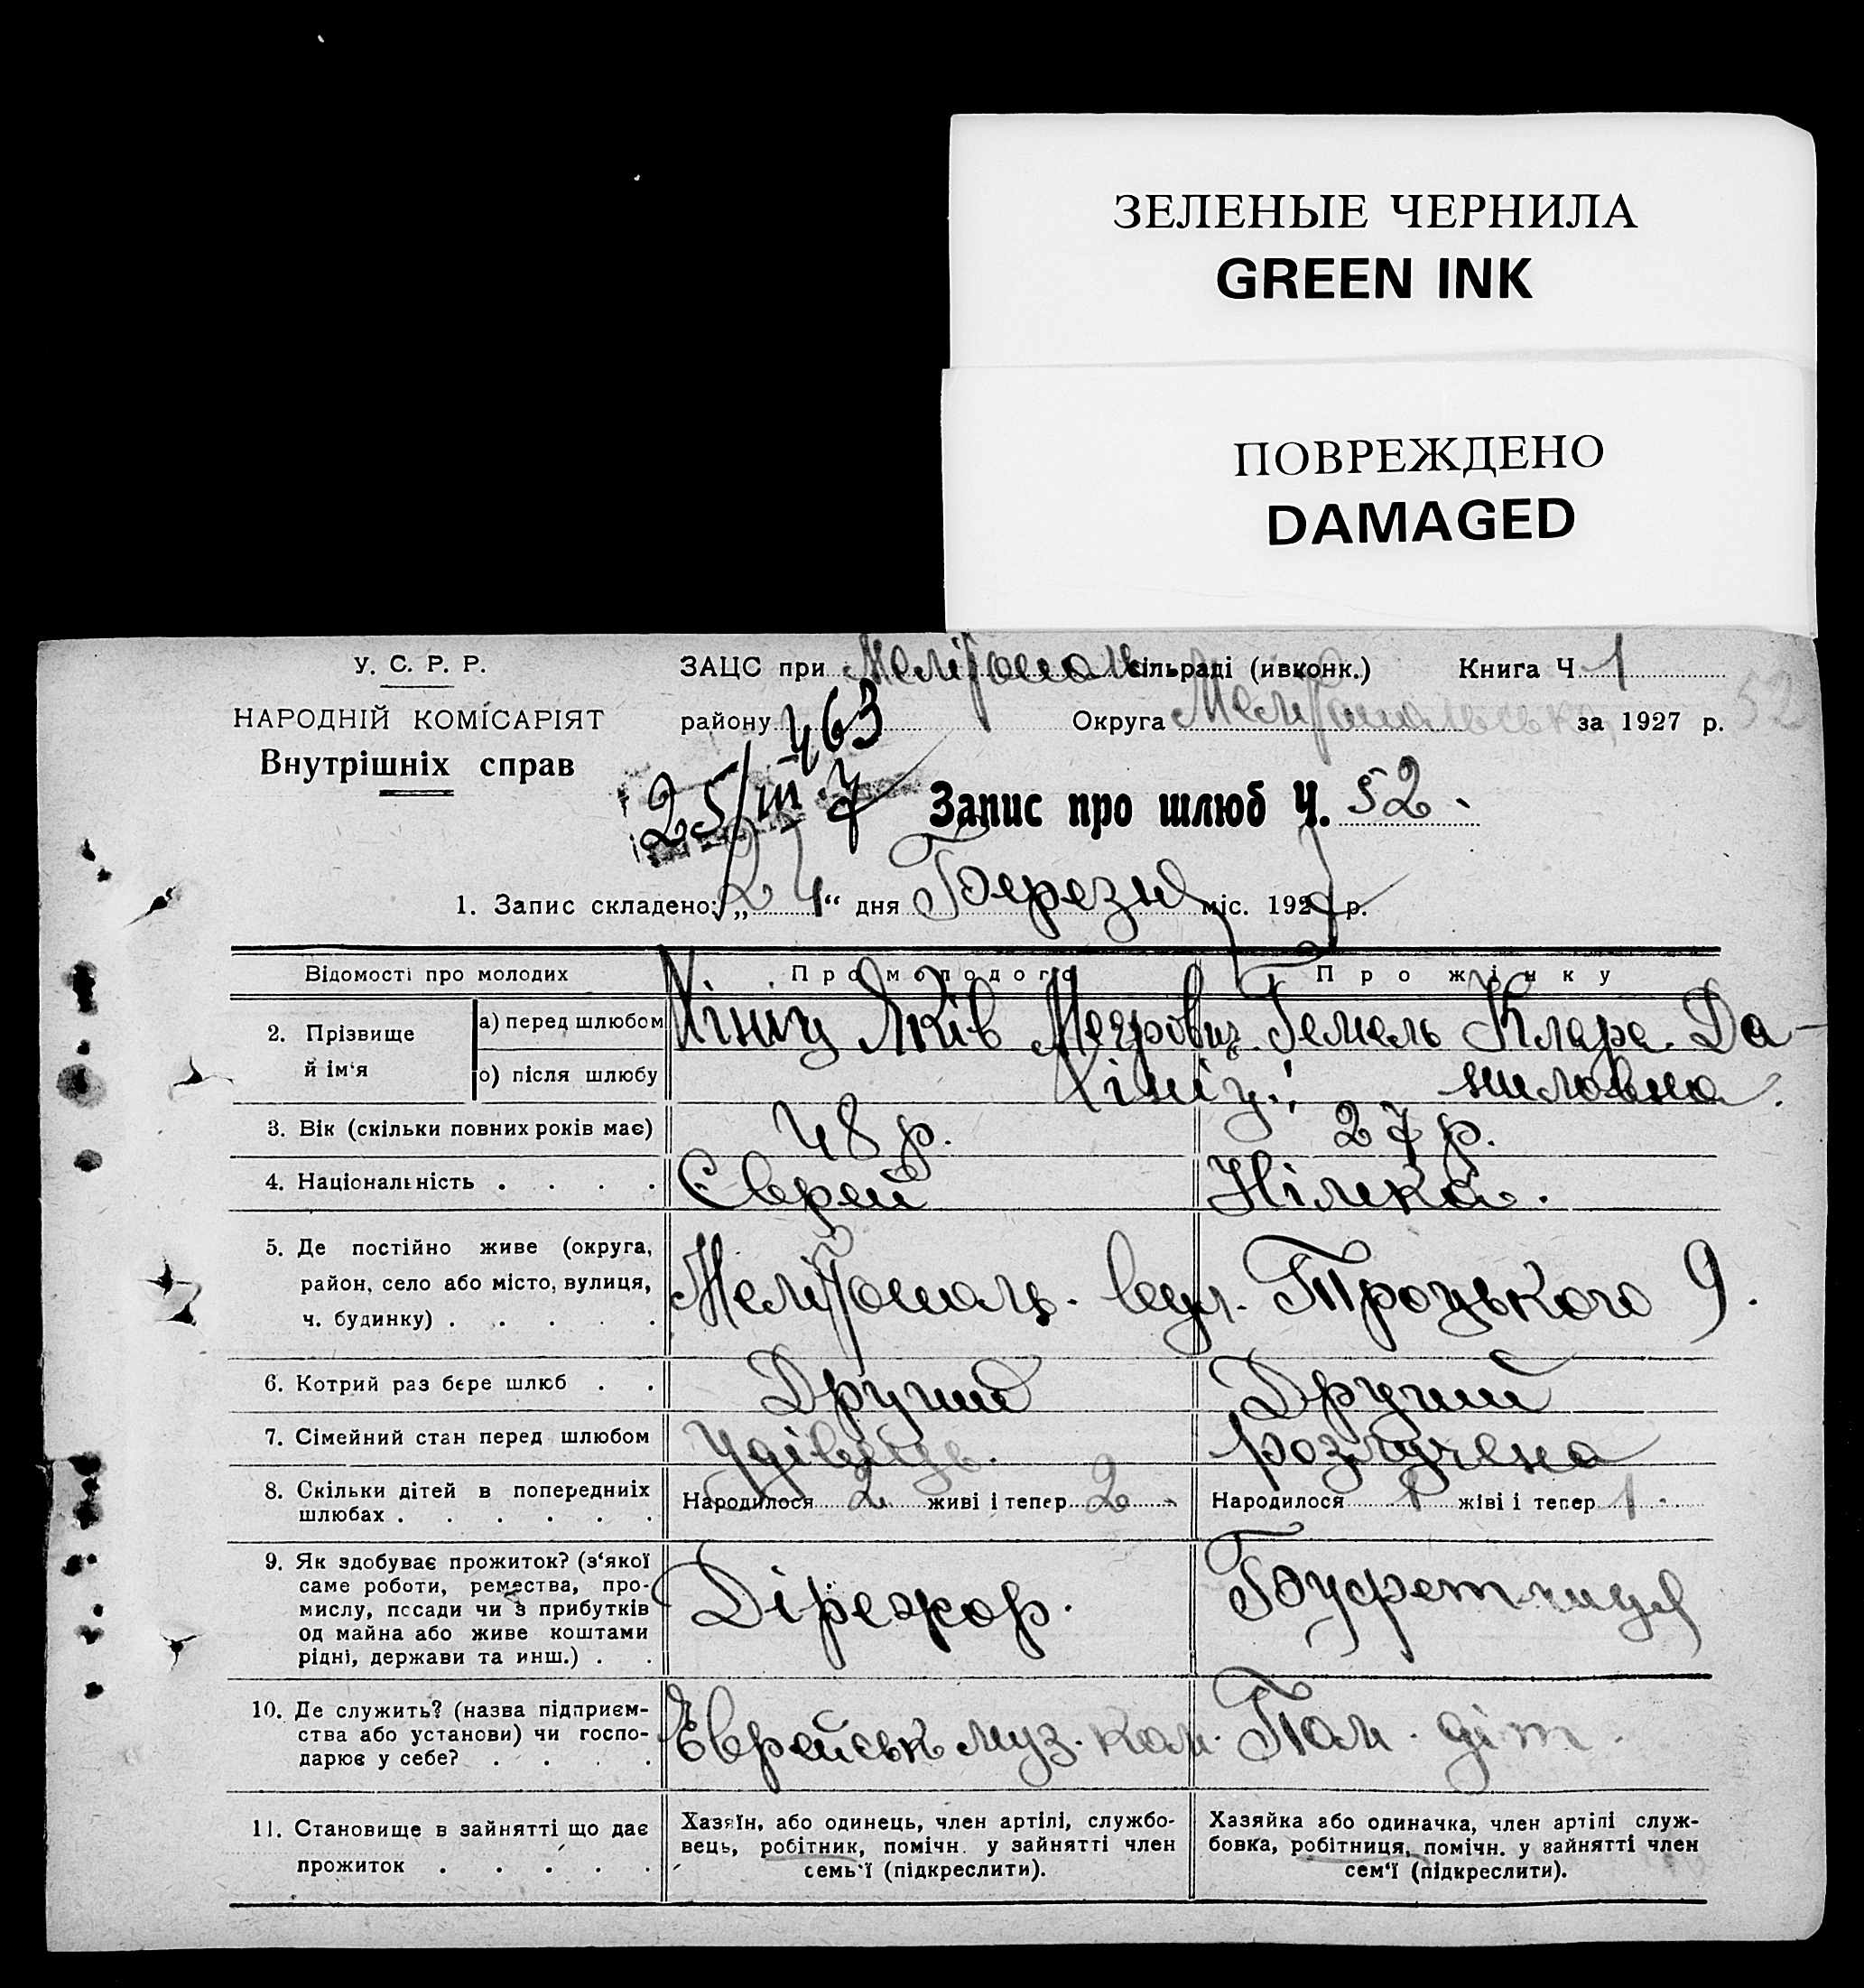 ЗЕЛЕНЫЕ ЧЕРНИЛА
GREEN INK
ПОВРЕЖДЕНО
DAMAGED
У. С. Р. Р.
НАРОДНІЙ КОМІСАРІЯТ
Внутрішніх справ
ЗАЦС при Мелітополь сільраді (ивконк.) Книга Ч 1
району Округа Мелітопольська за 1927 р. 52
463
25/III 7
Запис про шлюб Ч. 52
1. Запис складено: „24“ дня Березня міс. 1927 р.
Відомості про молодих Про молодого Про жінку
2. Прізвище й ім‘я
а) перед шлюбом Хініц Яків Меєрович Гемель Клара Да-
о) після шлюбу Хініц ниловна.
3. Вік (скільки повних років має) 48 р. 27 р.
4. Національність . . . . Єврей Німка.
5. Де постійно живе (округа,
район, село або місто, вулиця,
ч. будинку) . . . . . Мелітополь. вул. Троцького 9.
6. Котрий раз бере шлюб . . Другий Другий
7. Сімейний стан перед шлюбом Удівець. розлучена
8. Скільки дітей в попередниіх
шлюбах . . . . . . Народилося 2 живі і тепер 2 Народилося 1 жіві і тепер 1
9. Як здобуває прожиток? (з‘якої
саме роботи, ремества, про-
мислу, посади чи з прибутків
од майна або живе коштами
рідні, держави та инш.) . . Дірежор. Буфетчиця
10. Де служить? (назва підприєм-
ства або установи) чи госпо-
дарює у себе? . . . . Єврейськ муз. ком. Пом. діт.
11. Становище в зайнятті що дає
прожиток . . . . .
Хазяїн, або одинець, член артілі, службо-
вець, робітник, помічн. у зайнятті член
семь‘ї (підкреслити).
Хазяйка або одиначка, член артілі служ-
бовка, робітниця, помічн. у зайнятті член
сем‘ї (підкреслити).